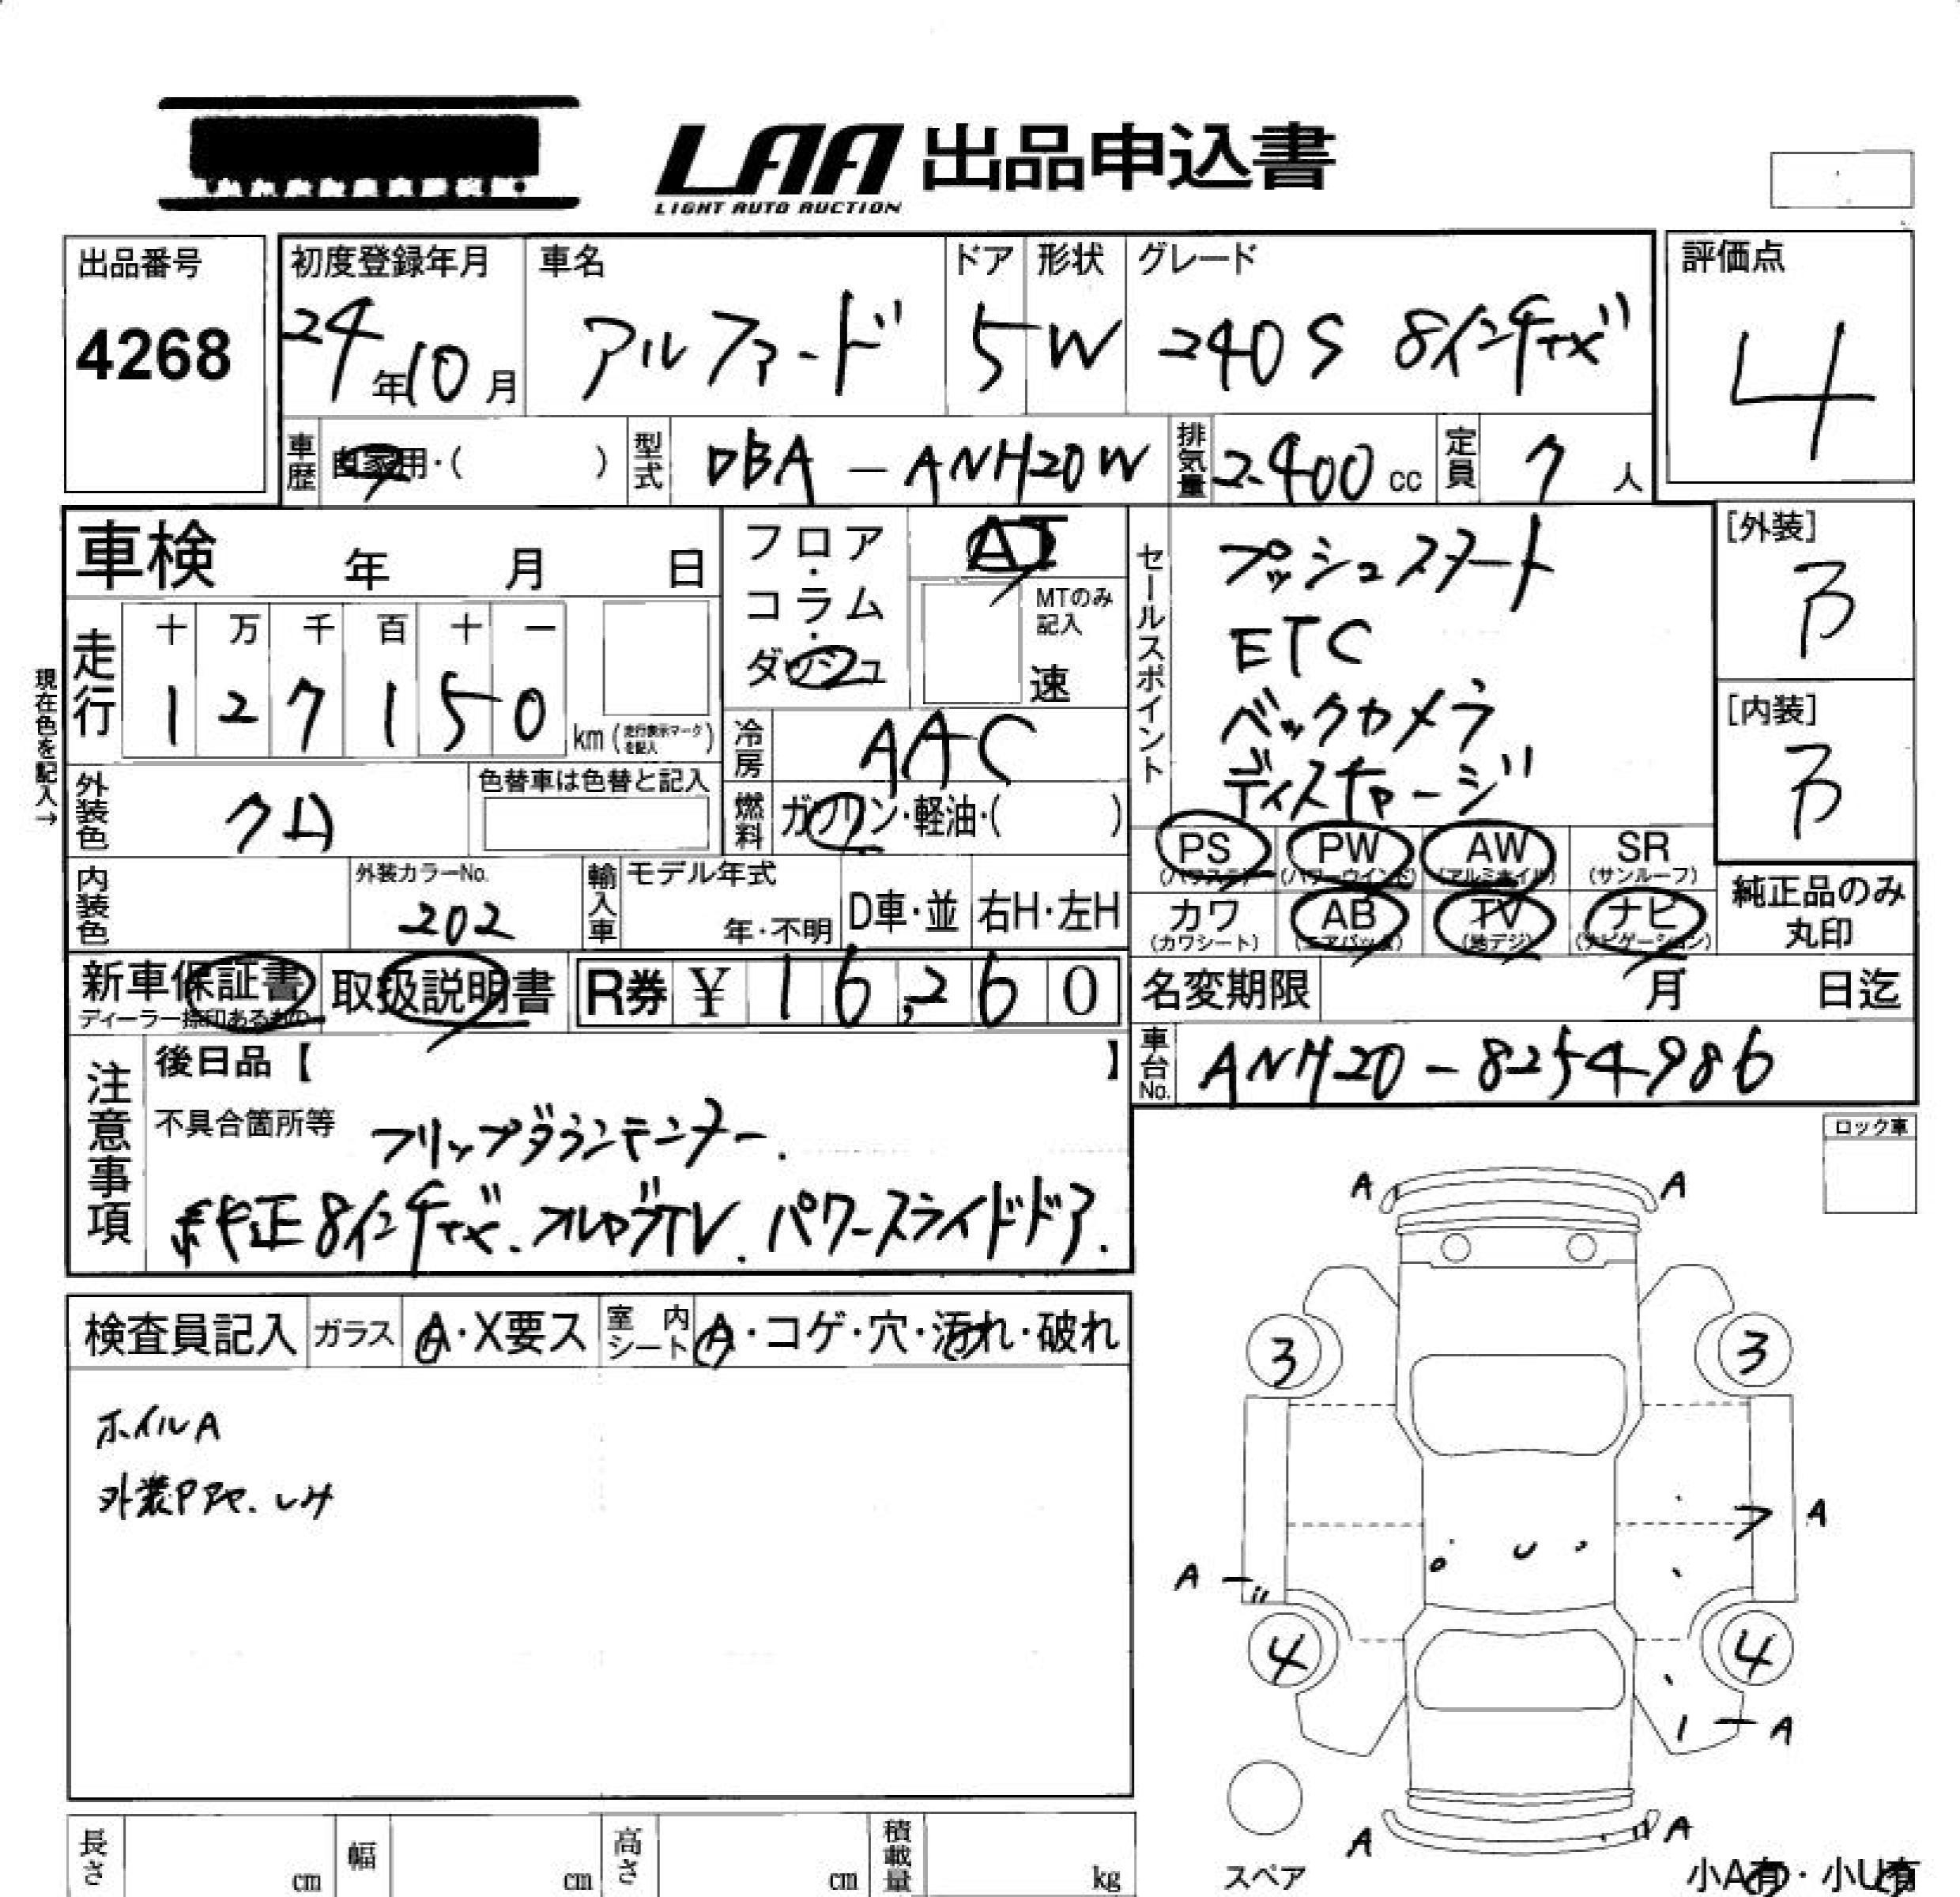 LAA 出品申込書
LIGHT AUTO AUCTION
出品番号
4268
初度登録年月
24年10月
車名
アルファード
ドア
5
形状
W
グレード
240S 8インチナビ
評価点
4
車歴 自家用・( )
型式 DBA-ANH20W
排気量 2400cc
定員 7人
車検 年 月 日
フロア・コラム・ダッシュ
AT
MTのみ記入
速
セールスポイント
プッシュスタート
ETC
バックカメラ
ディスチャージ
[外装]
B
[内装]
B
現在色を記入→
走行
十 万 千 百 十 一
1 2 7 1 5 0 km (走行表示マークを記入)
冷房 AAC
外装色 クロ
色替車は色替と記入
燃料 ガソリン・軽油・( )
PS (パワステ)
PW (パワーウインド)
AW (アルミホイル)
SR (サンルーフ)
カワ (カワシート)
AB (エアバッグ)
TV (地デジ)
ナビ (ナビゲーション)
純正品のみ丸印
内装色
外装カラーNo.
202
輸入車
モデル年式
年・不明
D車・並
右H・左H
新車保証書
ディーラー捺印あるもの
取扱説明書
R券 ¥ 16,260
名変期限 月 日迄
車台No. ANH20-8254986
注意事項
後日品【 】
不具合箇所等 フリップダウンモニター.
純正8インチナビ. フルセグTV. パワースライドドア.
ロック車
検査員記入
ガラス A・X要ス
室内シート A・コゲ・穴・汚れ・破れ
ホイルA
外装P
A A
3 3
A
A
4 4
A
A A
スペア
小A有・小U有
長さ cm
幅 cm
高さ cm
積載量 kg